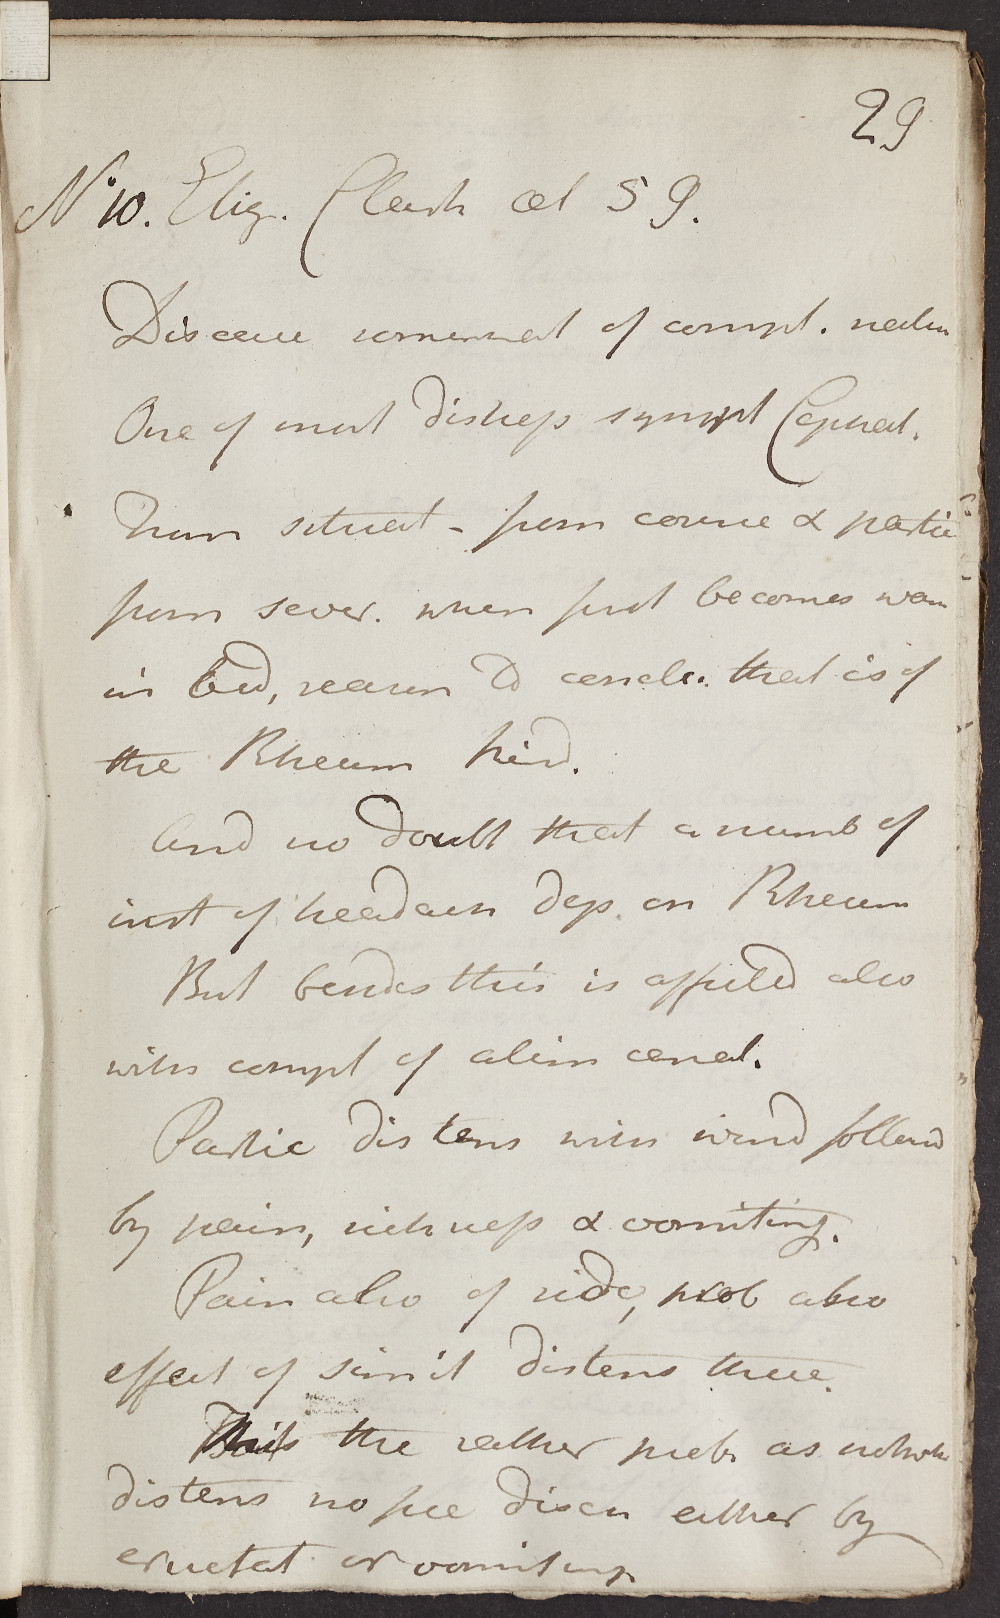 29
No 10. Eliz. Clark aet 59.
Disease somewhat of compl. natur
One of most distress sympt Cephal.
From situat - from course & partic
from sever. when first becomes warm
in bed, reason to conclu. that is of
the Rheum kind.
And no doubt that a numb of
inst of headach dep. on Rheum
But besides this is afflicted also
with compl of alim canal.
Partic distens with wind followd
by pain, sickness & vomiting.
Pain also of side, prob also
effect of simil distens there.
This the rather prob as
distens no free disch either by
eructat or vomiting